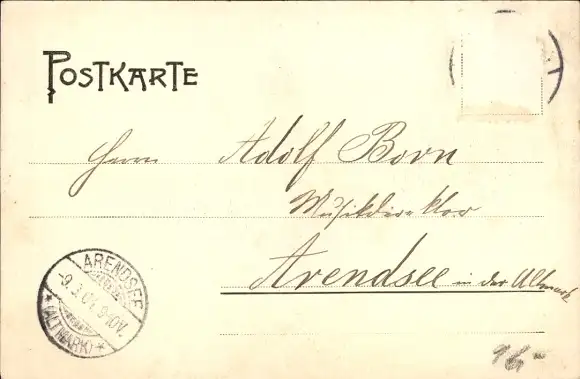 POSTKARTE
Herrn Adolf Born
Musikdirektor
Arendsee in der Altmark
ARENDSEE
-9.3.04. 9-10V.
* (ALTMARK) *